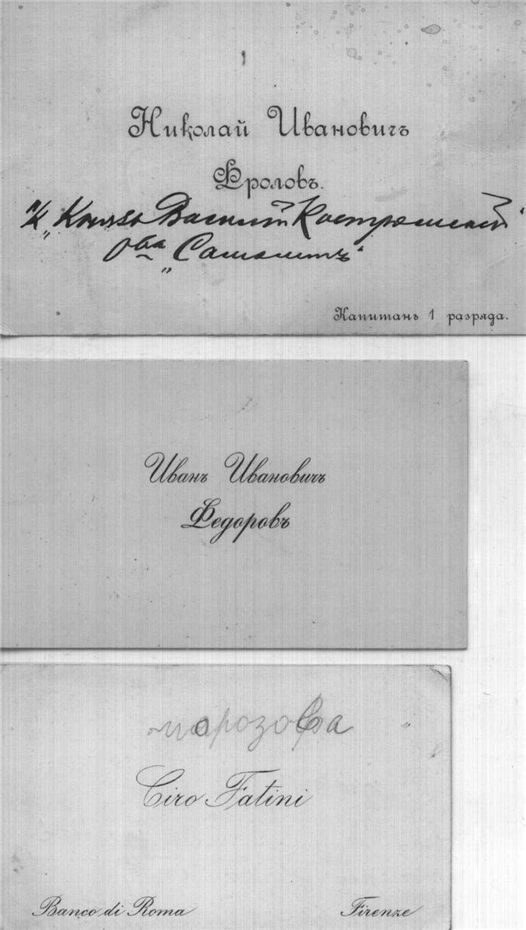 Николай Ивановичъ
Фроловъ.
п/х „Князь Василий Костромской“
О-ва „Самолетъ“
Капитанъ 1 разряда.
Иванъ Ивановичъ
Федоровъ
Ciro Fatini
Banco di Roma
Firenze